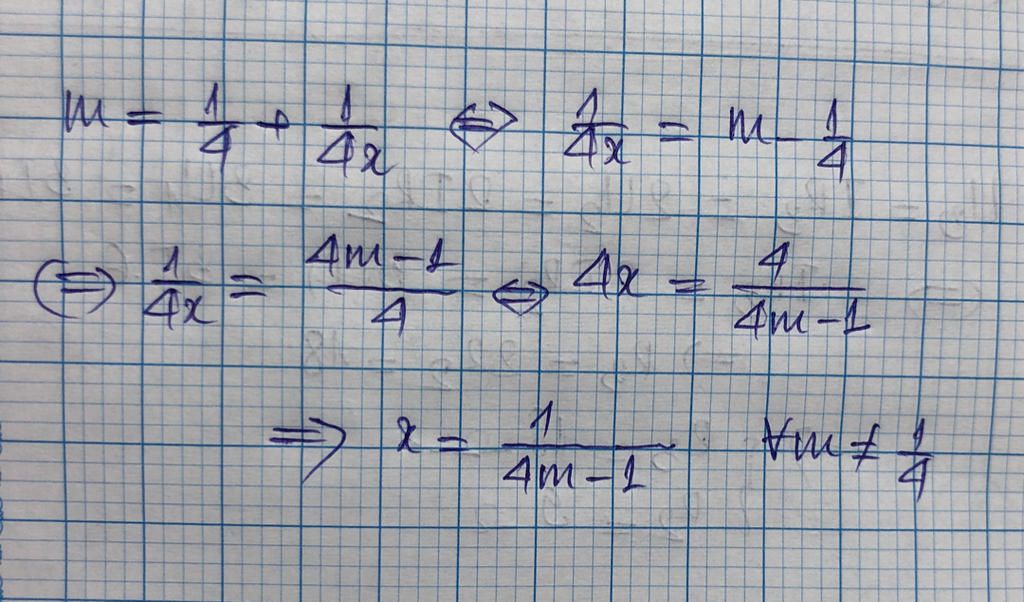 m = 1/4 + 1/4x ⇔ 1/4x = m - 1/4
(⇔) 1/4x = 4m-1/4 ⇔ 4x = 4/4m-1
⇒ x = 1/4m-1 ∀m ≠ 1/4